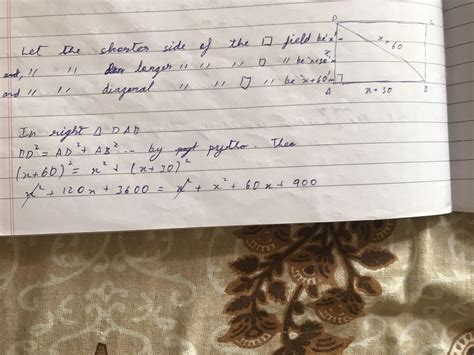 D C
Let the shorter side of the □ field be 'x'
x+60
and, " " longer " " " □ " be 'x+30'
x
and " " diagonal " " □ " be 'x+60'
A x+30 B
In right △ DAB
BD² = AD² + AB² ... by pytho. Theo
(x+60)² = x² + (x+30)²
x² + 120x + 3600 = x² + x² + 60x + 900